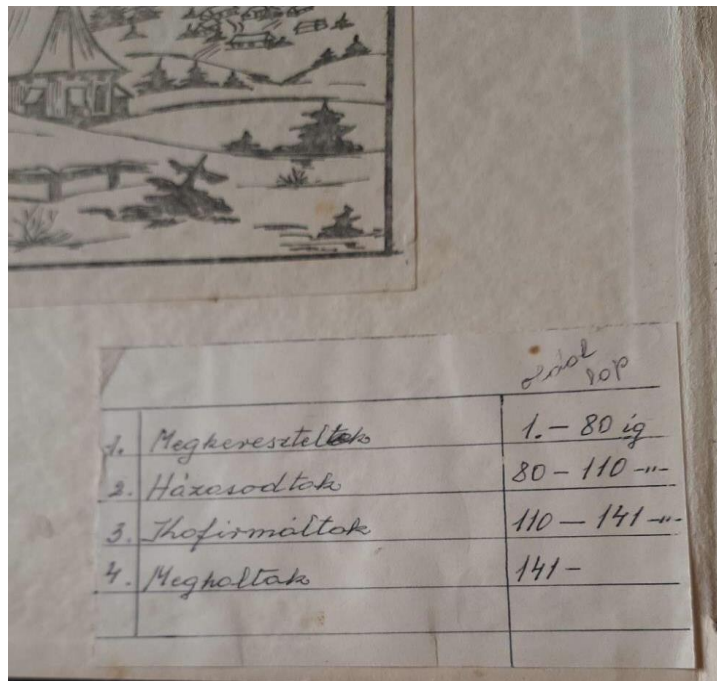 oldal
lap
1. Megkereszteltek 1. – 80 ig
2. Házasodtak 80 – 110 -"-
3. Kofirmáltak 110 – 141 -"-
4. Megholtak 141 –